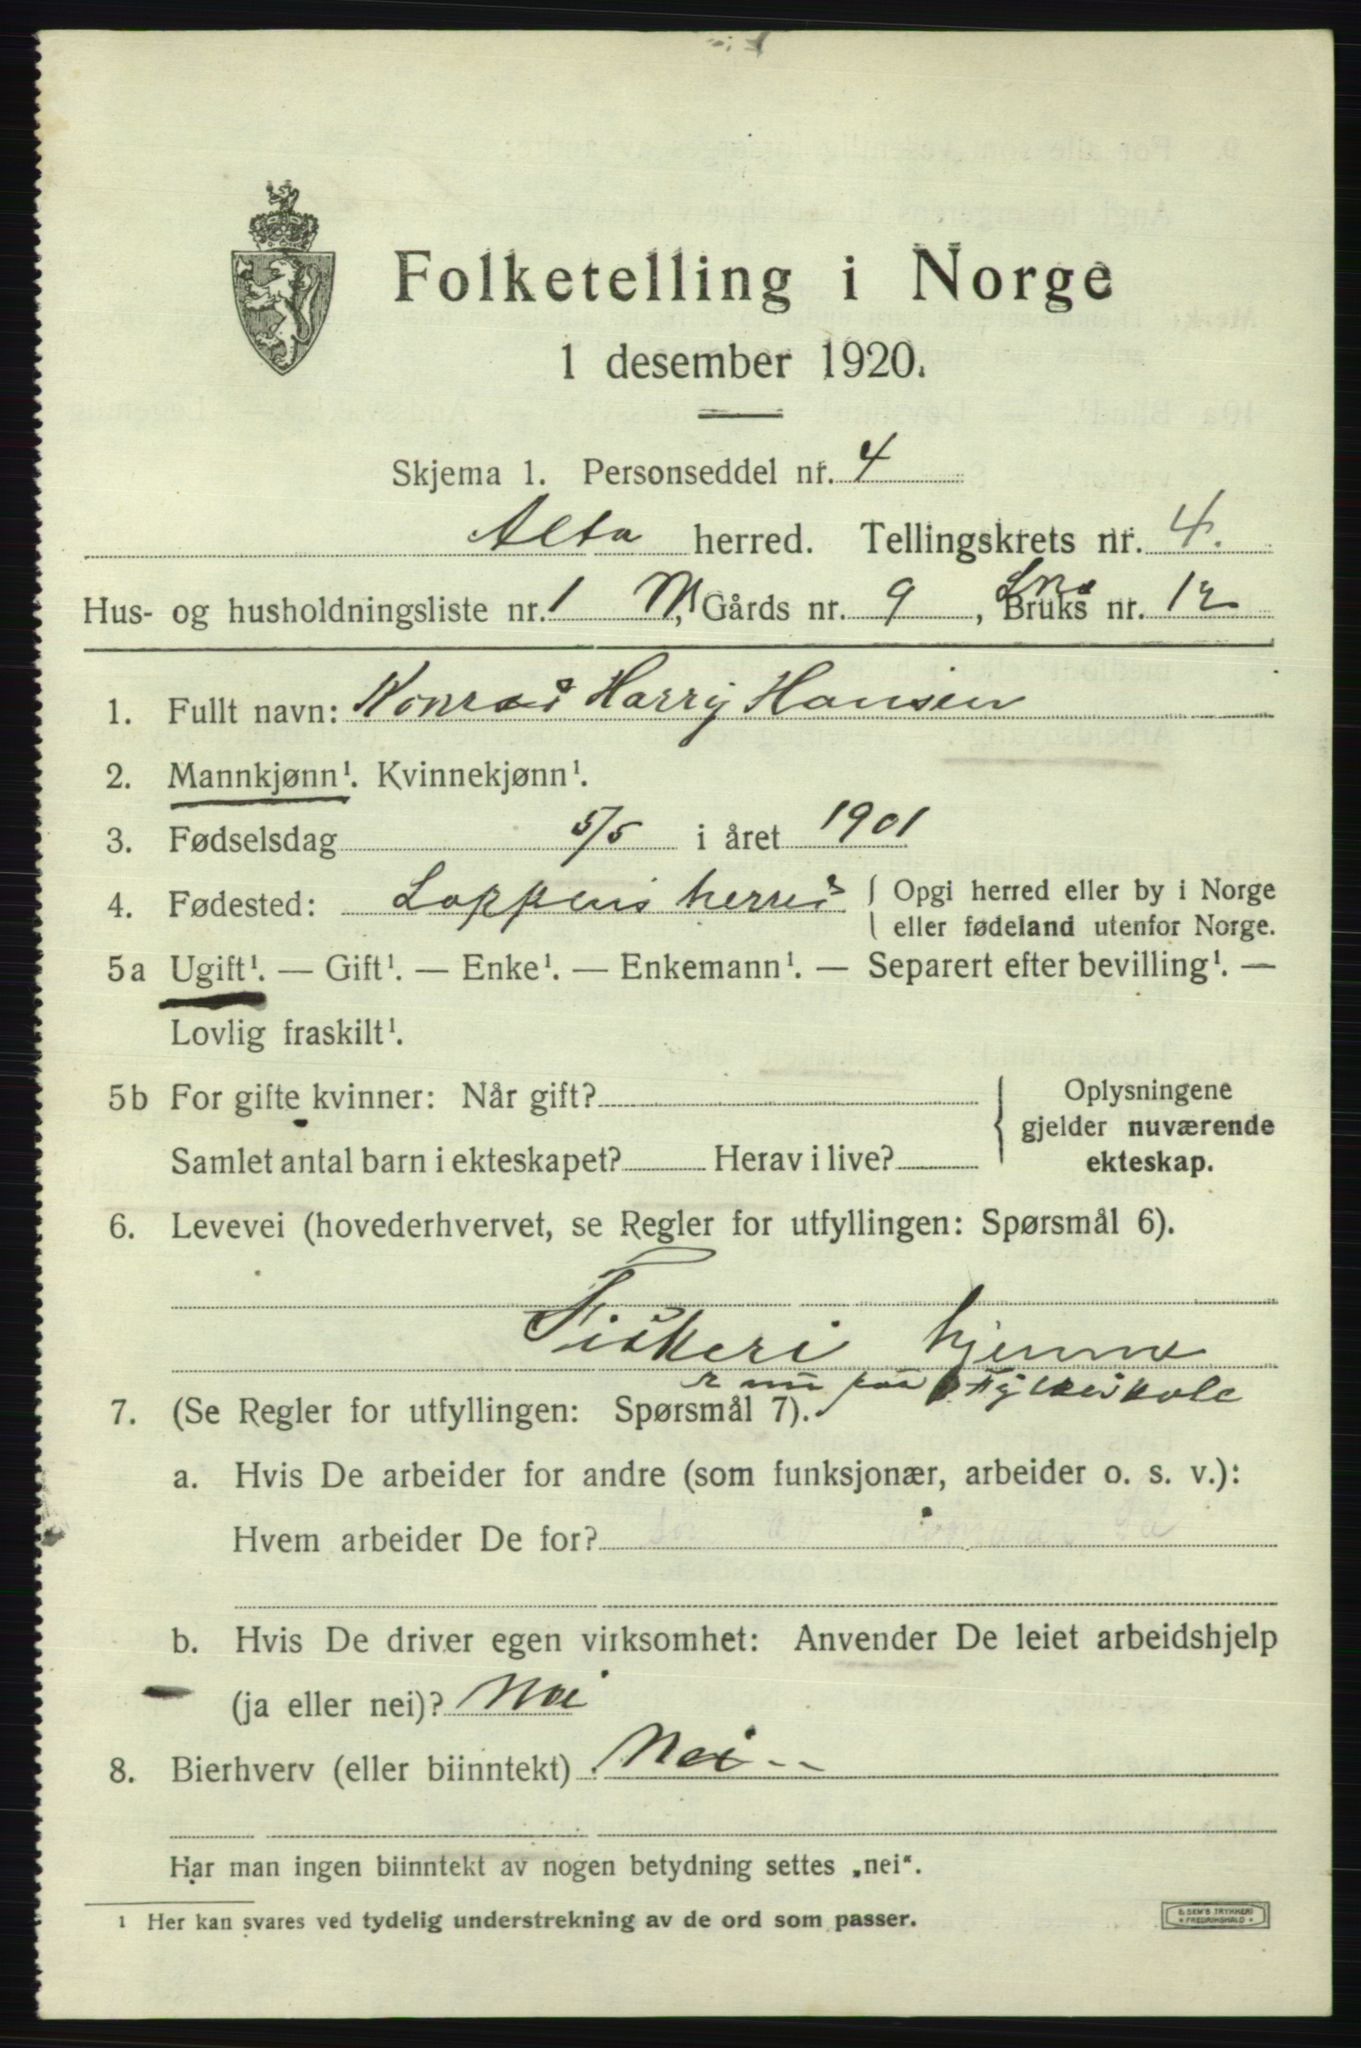 Folketelling i Norge
1 desember 1920.
Skjema 1. Personseddel nr. 4
Alta herred. Tellingskrets nr. 4.
Hus- og husholdningsliste nr. 1 M, Gårds nr. 9, Bruks nr. 12
1. Fullt navn: Konrad Harry Hansen
2. Mannkjønn¹. Kvinnekjønn¹.
3. Fødselsdag 5/5 i året 1901
4. Fødested: Loppens herred { Opgi herred eller by i Norge
eller fødeland utenfor Norge.
5a Ugift¹. — Gift¹. — Enke¹. — Enkemann¹. — Separert efter bevilling¹. —
Lovlig fraskilt¹.
5b For gifte kvinner: Når gift?
Samlet antal barn i ekteskapet? Herav i live?
{ Oplysningene
gjelder nuværende
ekteskap.
6. Levevei (hovederhvervet, se Regler for utfyllingen: Spørsmål 6).
Fiskeri hjemme
nu paa Fylkeskole
7. (Se Regler for utfyllingen: Spørsmål 7).
a. Hvis De arbeider for andre (som funksjonær, arbeider o. s. v.):
Hvem arbeider De for?
b. Hvis De driver egen virksomhet: Anvender De leiet arbeidshjelp
(ja eller nei)? Nei
8. Bierhverv (eller biinntekt) Nei --
Har man ingen biinntekt av nogen betydning settes „nei“.
¹ Her kan svares ved tydelig understrekning av de ord som passer.
E. SEM'S TRYKKERI
* FREDRIKSHALD *